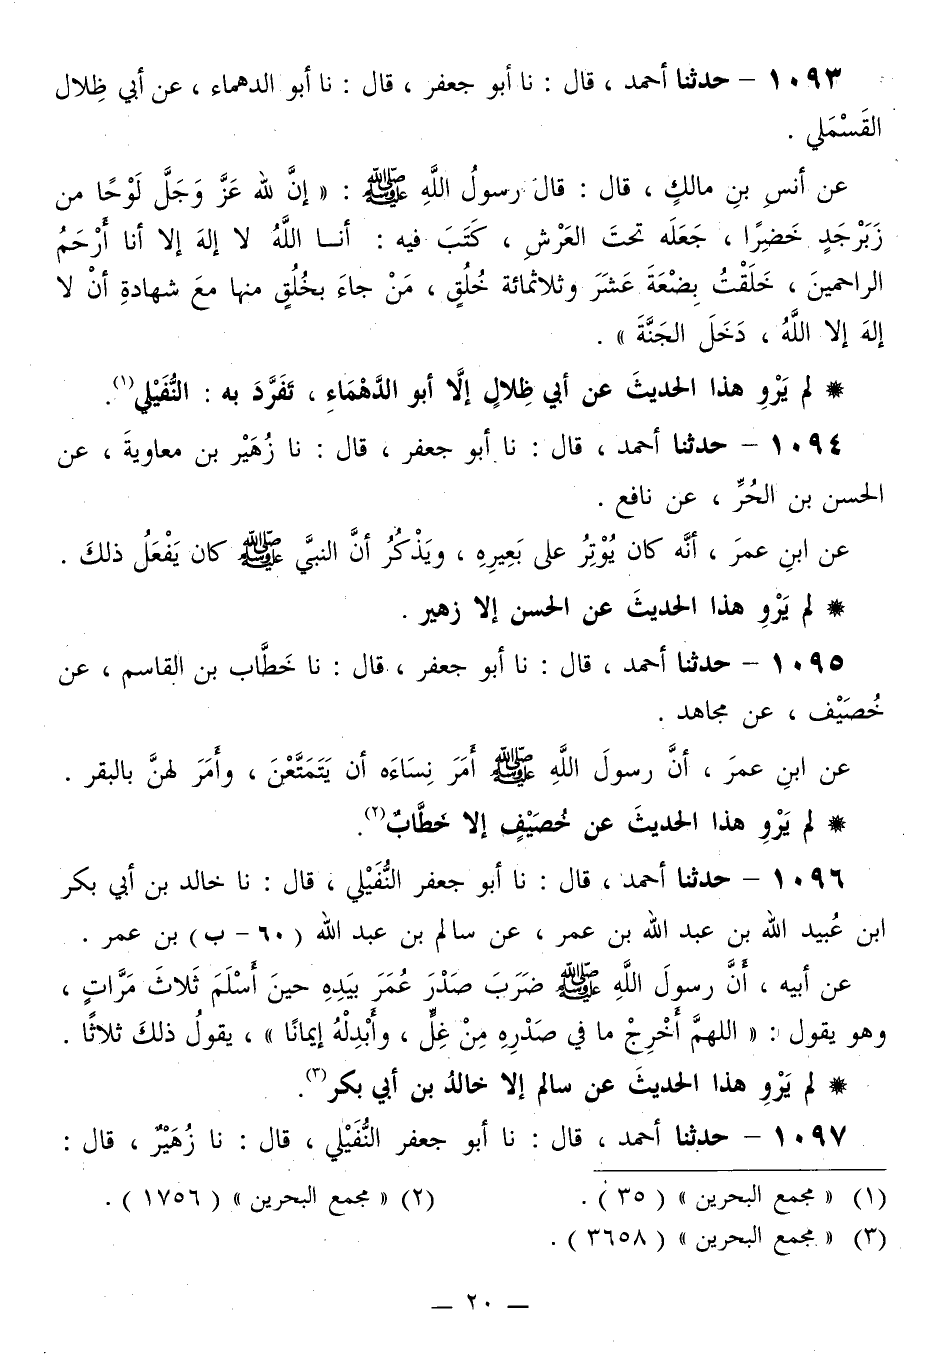 ١٠٩٣ - حدثنا أحمد ، قال : نا أبو جعفر ، قال : نا أبو الدهماء ، عن أبي ظِلال
القَسْمَلي .
عن أنسِ بنِ مالكٍ ، قال : قالَ رسولُ اللَّهِ ﷺ : « إنَّ لله عَزَّ وَجَلَّ لَوْحًا من
زَبَرْجَدٍ خَضِرًا ، جَعَلَه تحتَ العَرْشِ ، كَتَبَ فيه : أنــا اللَّهُ لا إلهَ إلا أنا أَرْحَمُ
الراحمينَ ، خَلَقْتُ بِضْعَةَ عَشَرَ وثلاثمائة خُلُقٍ ، مَنْ جاءَ بخُلُقٍ منها معَ شهادةِ أنْ لا
إلهَ إلا اللَّهُ ، دَخَلَ الجَنَّةَ » .
* لم يَرْوِ هذا الحديثَ عن أبي ظِلالٍ إلَّا أبو الدَّهْمَاءِ ، تَفَرَّدَ به : النُّفَيْلي(١).
١٠٩٤ - حدثنا أحمد ، قال : نا أبو جعفر ، قال : نا زُهَيْر بن معاويةَ ، عن
الحسن بن الحُرِّ ، عن نافع .
عن ابنِ عمرَ ، أنَّه كان يُوْتِرُ على بَعِيرِهِ ، ويَذْكُرُ أنَّ النبيَّ ﷺ كان يَفْعَلُ ذلكَ .
* لم يَرْوِ هذا الحديثَ عن الحسن إلا زهير .
١٠٩٥ - حدثنا أحمد ، قال : نا أبو جعفر ، قال : نا خَطَّاب بن القاسم ، عن
خُصَيْف ، عن مجاهد .
عن ابنِ عمرَ ، أنَّ رسولَ اللَّهِ ﷺ أَمَرَ نِسَاءَه أن يَتَمَتَّعْنَ ، وأَمَرَ لهنَّ بالبقر .
* لم يَرْوِ هذا الحديثَ عن خُصَيْفٍ إلا خَطَّابٌ(٢).
١٠٩٦ - حدثنا أحمد ، قال : نا أبو جعفر النُّفَيْلي ، قال : نا خالد بن أبي بكر
ابن عُبيد الله بن عبد الله بن عمر ، عن سالم بن عبد الله ( ٦٠ - ب ) بن عمر .
عن أبيه ، أَنَّ رسولَ اللَّهِ ﷺ ضَرَبَ صَدْرَ عُمَرَ بيَدِهِ حينَ أَسْلَمَ ثَلاثَ مَرَّاتٍ ،
وهو يقول : « اللهمَّ أَخْرِجْ ما في صَدْرِهِ مِنْ غِلٍّ ، وأَبْدِلْهُ إيمانًا » ، يقولُ ذلكَ ثلاثًا .
* لم يَرْوِ هذا الحديثَ عن سالم إلا خالدُ بن أبي بكر(٣).
١٠٩٧ - حدثنا أحمد ، قال : نا أبو جعفر النُّفَيْلي ، قال : نا زُهَيْرٌ ، قال :
(١) « مجمع البحرين » ( ٣٥ ) . (٢) « مجمع البحرين » ( ١٧٥٦ ) .
(٣) « مجمع البحرين » ( ٣٦٥٨ ) .
— ٢٠ —